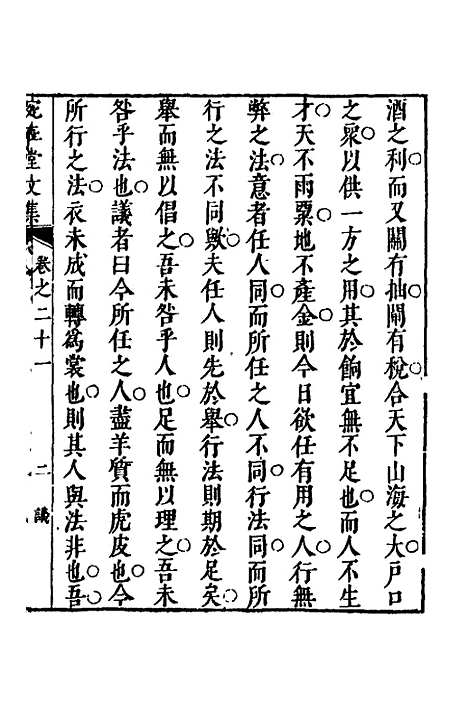 酒之利而又關有抽關有稅合天下山海之大戶口
之眾以供一方之用其於餉宜無不足也而人不生
才天不雨粟地不產金則今日欲任有用之人行無
弊之法意者任人同而所任之人不同行法同而所
行之法不同歟夫任人則先於舉行法則期於足矣
舉而無以倡之吾未咎乎人也足而無以理之吾未
咎乎法也議者曰今所任之人盡羊質而虎皮也今
所行之法衣未成而轉為裳也則其人與法非也吾
堂文集 卷之二十一 二 議